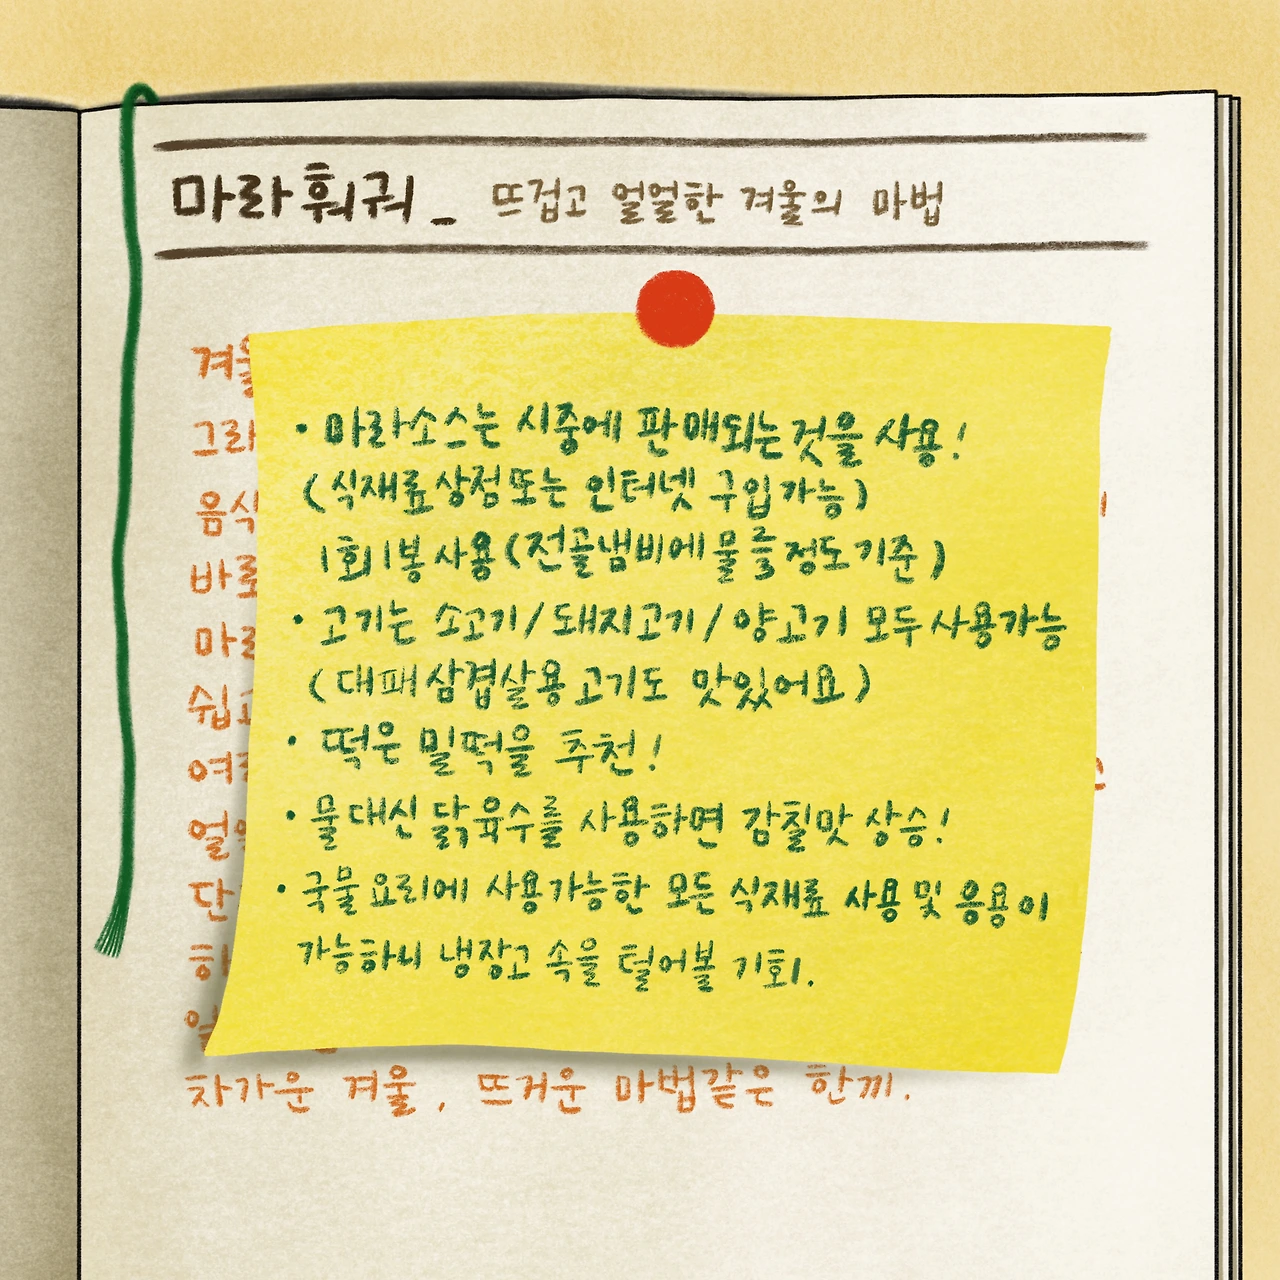 마라훠궈_ 뜨겁고 얼얼한 겨울의 마법
겨울
그래
음식
바로
마라
쉽고
얼얼
단
하
차가운 겨울, 뜨거운 마법같은 한끼.
• 마라소스는 시중에 판매되는것을 사용!
(식재료상점또는 인터넷 구입가능)
1회1봉사용(전골냄비에물를정도기준)
• 고기는 소고기/돼지고기/양고기 모두사용가능
(대패삼겹살용고기도 맛있어요)
• 떡은 밀떡을 추천!
• 물대신 닭육수를 사용하면 감칠맛 상승!
• 국물요리에 사용가능한 모든 식재료 사용및 응용이
가능하니 냉장고 속을 털어볼 기회.